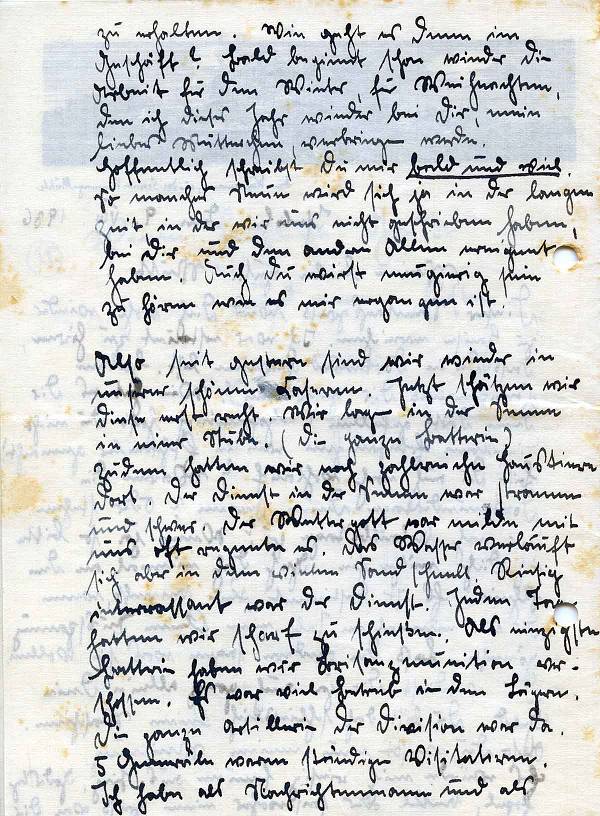 zu erhalten. Wie geht es denn im
Geschäft? Bald beginnt schon wieder die
Arbeit für den Winter, für Weihnachten,
den ich dieses Jahr wieder bei Dir, mein
liebes Mutterchen, verbringen werde.
Hoffentlich schreibst Du mir bald und viel.
So mancher wird sich ja in der langen
Zeit in der wir uns nicht geschrieben haben,
bei Dir und den andern Allen ereignet
haben. Auch Du wirst neugierig sein
zu hören wie es mir ergangen ist.
Also, seit gestern sind wir wieder in
unserer schönen Kaserne. Jetzt schätzen wir
diese erst recht. Wir lagen in der Senne
in einer Stube. (Die ganze Batterie)
Zudem hatten wir noch zahlreiche Haustiere
dort. Der Dienst in der Senne war stramm
und schwer. Der Wettergott war milde mit
uns oft regnete es. Das Wasser verläuft
sich aber in dem weiten Sand schnell. Riesig
interressant war der Dienst. Jeden Tag
hatten wir scharf zu schießen. Als einzigste
Batterie haben wir Brisanzmunition ver-
schossen. Es war viel Betrieb in dem Lager.
Die ganze Artillerie der Division war da.
5 Generäle waren ständige Visitatoren.
Ich habe als Nachrichtenmann und als